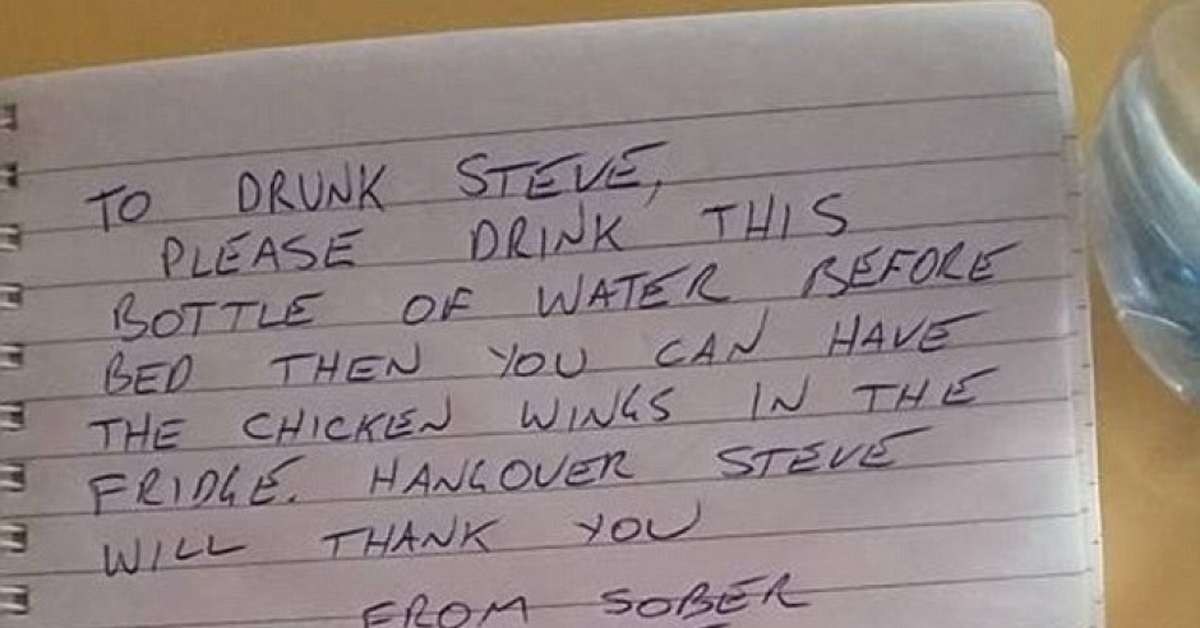 TO DRUNK STEVE,
PLEASE DRINK THIS
BOTTLE OF WATER BEFORE
BED THEN YOU CAN HAVE
THE CHICKEN WINGS IN THE
FRIDGE. HANGOVER STEVE
WILL THANK YOU
FROM SOBER